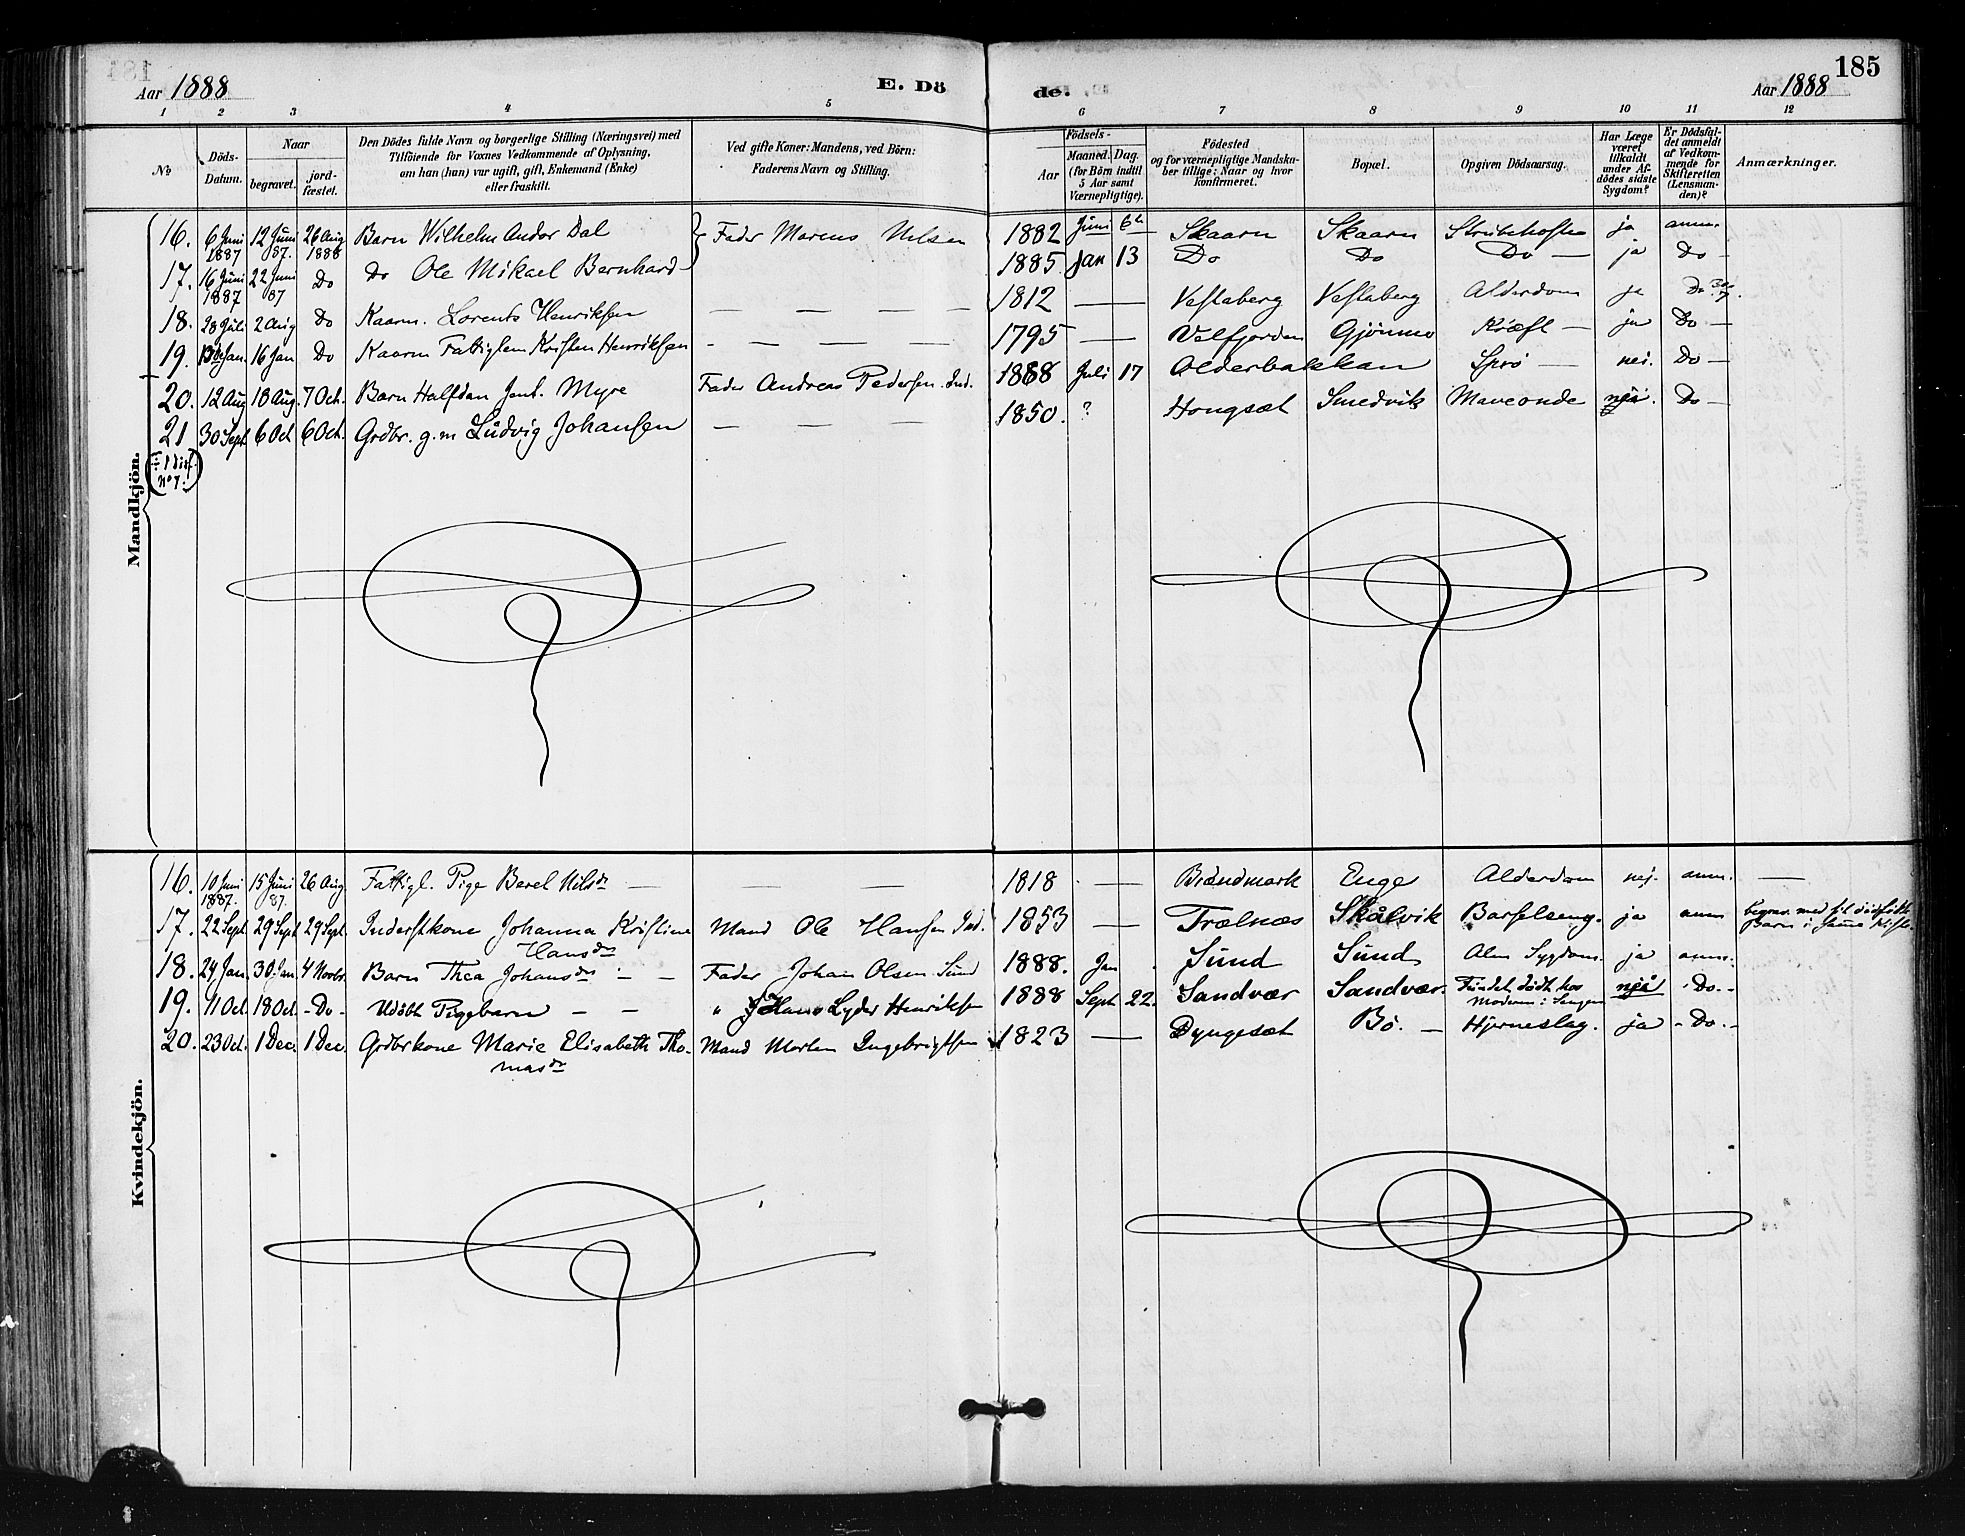 Aar 1888
E. Dö
de.
Aar 1888
185
1 2 3 4 5 6 7 8 9 10 11 12
No
Döds-
Datum.
Naar
begravet.
jord-
fæstet.
Den Dödes fulde Navn og borgerlige Stilling (Næringsvei) med
Tilföiende for Voxnes Vedkommende af Oplysning,
om han (hun) var ugift, gift, Enkemand (Enke)
eller fraskilt.
Ved gifte Koner: Mandens, ved Börn:
Faderens Navn og Stilling.
Födsels-
Aar
Maaned. Dag.
(for Börn indtil
5 Aar samt
Værnepligtige).
Födested
og for værnepligtige Mandska-
ber tillige: Naar og hvor
konfirmeret.
Bopæl.
Opgiven Dödsaarsag.
Har Læge
været
tilkaldt
under Af-
dödes sidste
Sygdom?
Er Dödsfal-
det anmeldt
af Vedkom-
mende for
Skifteretten
(Lensman-
den)?
Anmærkninger.
Mandkjön.
16. 6 Juni 1887 12 Juni 87. 26 Aug 1888 Barn Wilhelm Andor Dal } Fader Marcus Nilsen 1882 Juni 6te Skaarn Skaarn Strubehoste ja anm.
17. 16 Juni 1887 22 Juni 87 Do Do Ole Mikael Bernhard 1885 Jan 13 Do Do Do — ja Do —
18. 28 Juli 2 Aug Do Kaarm. Lorents Henriksen — — — — 1812 — Vestaberg Vestaberg Alderdom ja Do
19. Jan. 16 Jan Do Kaarm Fattiglem Kristen Henriksen - — — — 1795 — Velfjorden Gjönnes Kræft — ja Do —
20. 12 Aug 18 Aug. 7 Oct. Barn Halfdan Jent. Myre Fader Andreas Pedersen Ind. 1888 Juli 17 Alderbakkan Sprö — nei. Do —
21 30 Sept 6 Oct 6 Oct. Grdbr. g.m Ludvig Johansen — — — 1850. ? Hongsæt Smedvik Maveonde nei. Do —
(÷ 1 disf.
no 7.)
Kvindekjön.
16. 10 Juni 1887. 15 Juni 87. 26 Aug. Fattigl. Pige Berel Nilsdr — — — 1818 — Brændmark Enge Alderdom nej. anm. —
17. 22 Sept 29 Sept 29 Sept. Inderstkone Johanna Kristine Hansdr Mand Ole Hansen Ind. 1853 — Trælnæs Skålvik Barselseng. ja anm begrav. med sit dödfödte Barn i samme Kiste.
18. 24 Jan. 30 Jan 4 Novbr. Barn Thea Johansdr — — Fader Johan Olsen Sund 1888. Jan Sund Sund Alm Sygdom. ja anm.
19. 11 Oct. 18 Oct - Do - Udöbt Pigebarn — — " Hans Lyder Henriksen 1888 Sept 22. Sandvær Sandvær. Fundet dödt hos Moderen i Sengen nei - Do. -
20. 23 Oct. 1 Dec. 1 Dec. Grdbrkone Marie Elisabeth Tho-
masdr Mand Morten Ingebrigtsen 1823 — Dyngesæt Bö. — Hjerneslag. ja - Do. -